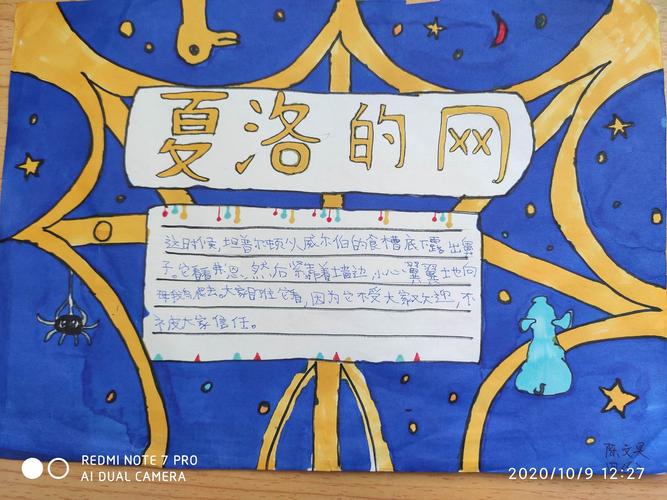 夏洛的网
这时候,坦普尔顿从威尔伯的食槽底下露出鼻
子。它看看井口,然后紧靠着墙边,小心翼翼地向
母鹅爬去。大家盯住它看,因为它不受大家欢迎,不
被大家信任。
陈文昊
REDMI NOTE 7 PRO
AI DUAL CAMERA
2020/10/9 12:27